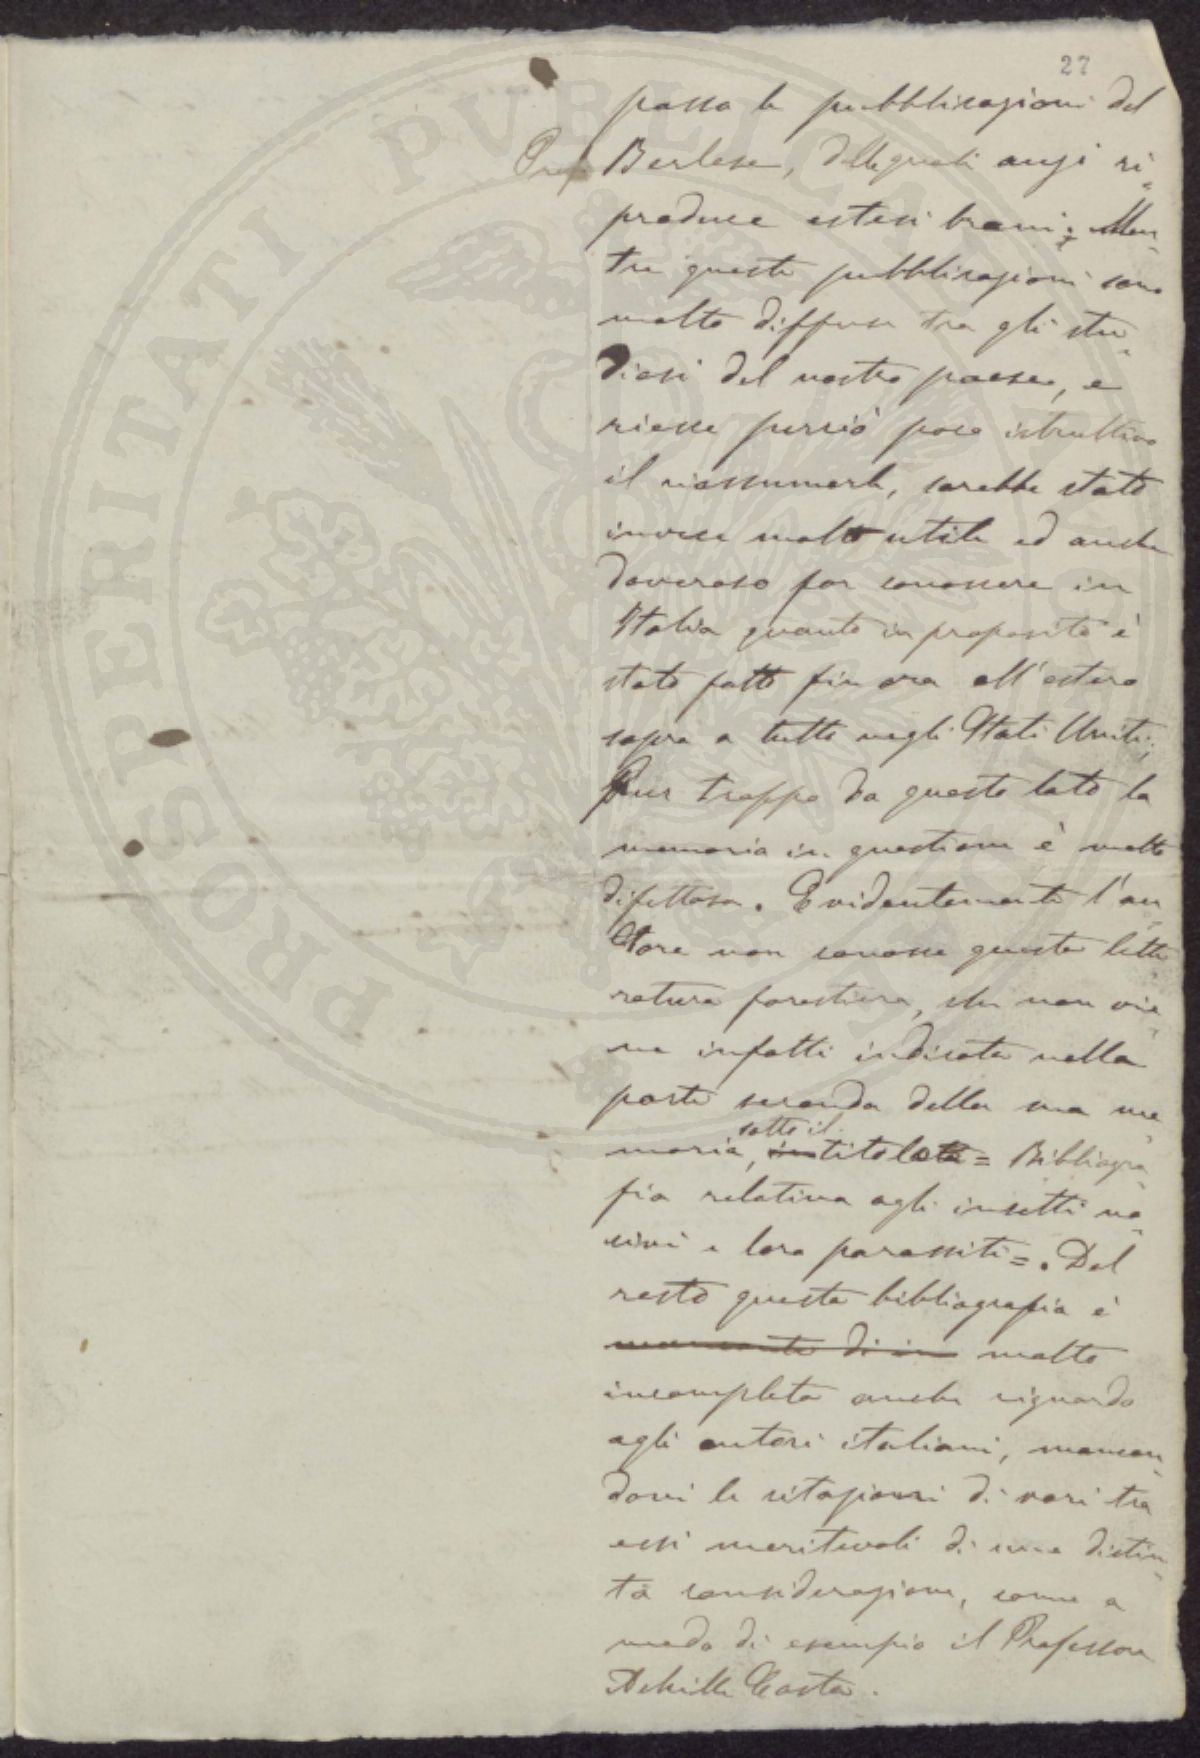 27
passa le pubblicazioni del
Prof. Berlese, delle quali anzi ri-
produce estesi brani; Men-
tre queste pubblicazioni sono
molto diffuse tra gli stu-
diosi del nostro paese, e
riesce perciò poco istruttivo
il riassumerle, sarebbe stato
invece molto utile ed anche
doveroso far conoscere in
Italia quanto in proposito è
stato fatto fin ora all'estero
sopra a tutto negli Stati Uniti;
Pur troppo da questo lato la
memoria in questione è molto
difettosa. Evidentemente l'au-
tore non conosce questa lette
ratura forestiera, che non vie-
ne infatti indicata nella
parte seconda della sua me-
moria, sotto il titolo = Bibliogra-
fia relativa agli insetti no-
civi e loro parassiti =. Del
resto questa bibliografia è
mancante di in molto
incompleta anche riguardo
agli autori italiani, mancan-
dovi le citazioni di vari tra
essi meritevoli di una distin-
ta considerazione, come a
modo di esempio il Professore
Achille Costa.
PROSPERITATI PVBLICAE